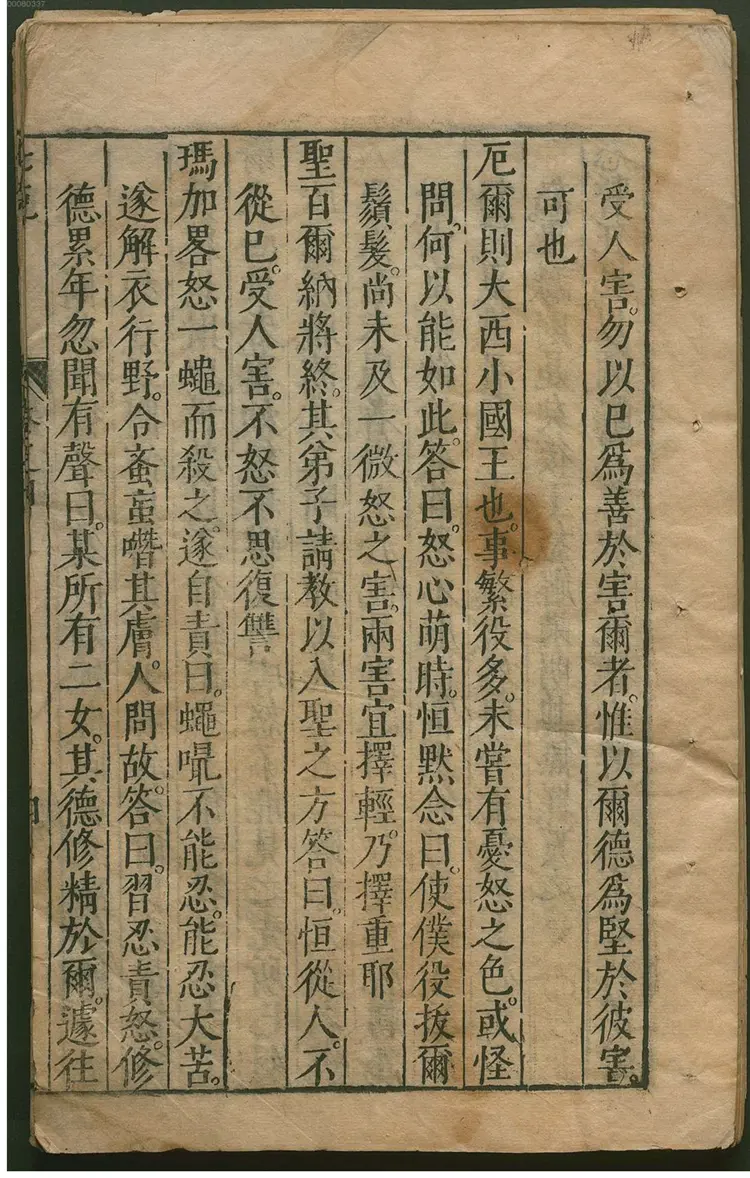 00080337
受人害。勿以已爲善於害爾者。惟以爾德爲堅於彼害。
可也
厄爾則大西小國王也。事繁役多。未嘗有憂怒之色。或怪
問。何以能如此。答曰。怒心萌時。恒默念曰。使僕役拔爾
鬚髮。尚未及一微怒之害。兩害宜擇輕。乃擇重耶
聖百爾納將終。其弟子請教以入聖之方。答曰。恒從人。不
從已。受人害。不怒不思復讐
瑪加畧怒一蠅而殺之。遂自責曰。蠅嘬不能忍。能忍大苦。
遂解衣行野。令蚉䖟噆其膚。人問故。答曰。習忍責怒。修
德累年。忽聞有聲曰。某所有二女。其德修精於爾。遽往